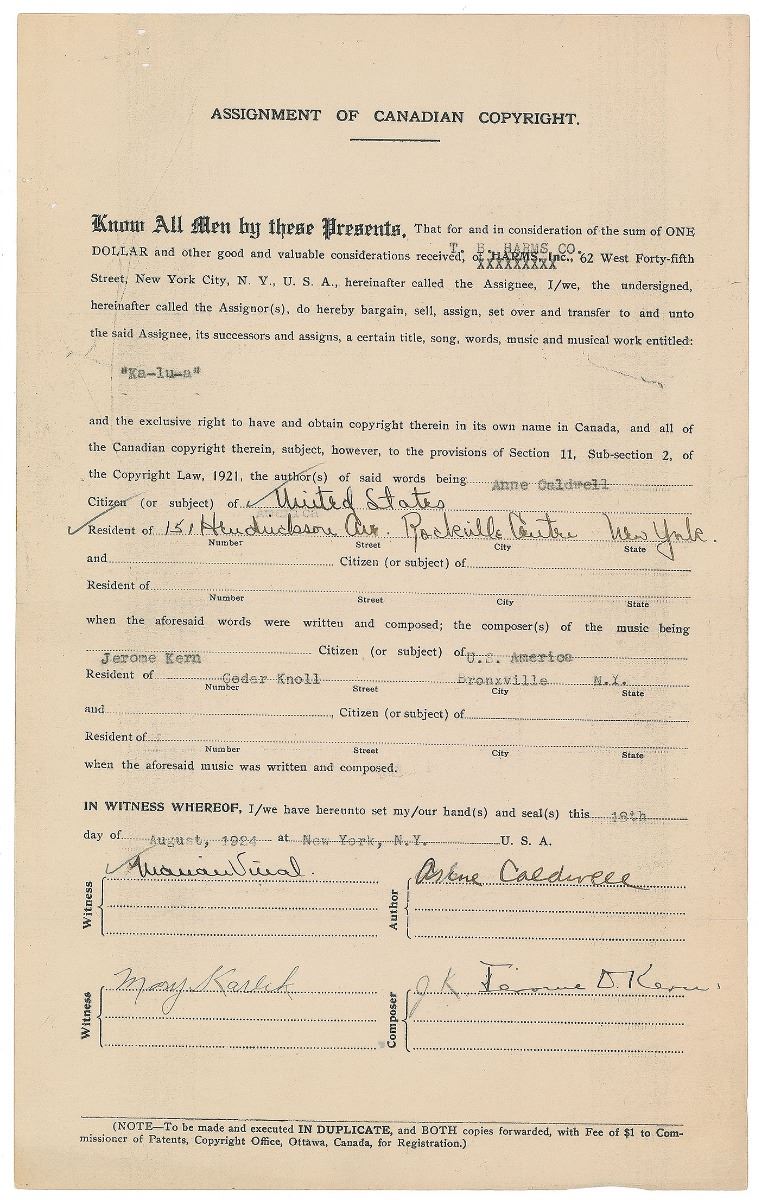 ASSIGNMENT OF CANADIAN COPYRIGHT.
Know All Men by these Presents, That for and in consideration of the sum of ONE
T. B. HARMS CO.
DOLLAR and other good and valuable considerations received, of HARMS, Inc., 62 West Forty-fifth
XXXXXXXXX
Street, New York City, N. Y., U. S. A., hereinafter called the Assignee, I/we, the undersigned,
hereinafter called the Assignor(s), do hereby bargain, sell, assign, set over and transfer to and unto
the said Assignee, its successors and assigns, a certain title, song, words, music and musical work entitled:
"Ka-lu-a"
and the exclusive right to have and obtain copyright therein in its own name in Canada, and all of
the Canadian copyright therein, subject, however, to the provisions of Section 11, Sub-section 2, of
the Copyright Law, 1921, the author(s) of said words being Anne Caldwell
Citizen (or subject) of United States
Resident of 151 Hendrickson Av. Rockville Centre New York.
Number Street City State
and Citizen (or subject) of
Resident of
Number Street City State
when the aforesaid words were written and composed; the composer(s) of the music being
Jerome Kern Citizen (or subject) of U.S. America
Resident of Cedar Knoll Bronxville N.Y.
Number Street City State
and , Citizen (or subject) of
Resident of
Number Street City State
when the aforesaid music was written and composed.
IN WITNESS WHEREOF, I/we have hereunto set my/our hand(s) and seal(s) this 18th
day of August, 1924 at New York, N.Y. U. S. A.
Witness Marian Author Anne Caldwell
Witness Mary Karlik Composer J K Jerome D. Kern.
(NOTE—To be made and executed IN DUPLICATE, and BOTH copies forwarded, with Fee of $1 to Com-
missioner of Patents, Copyright Office, Ottawa, Canada, for Registration.)